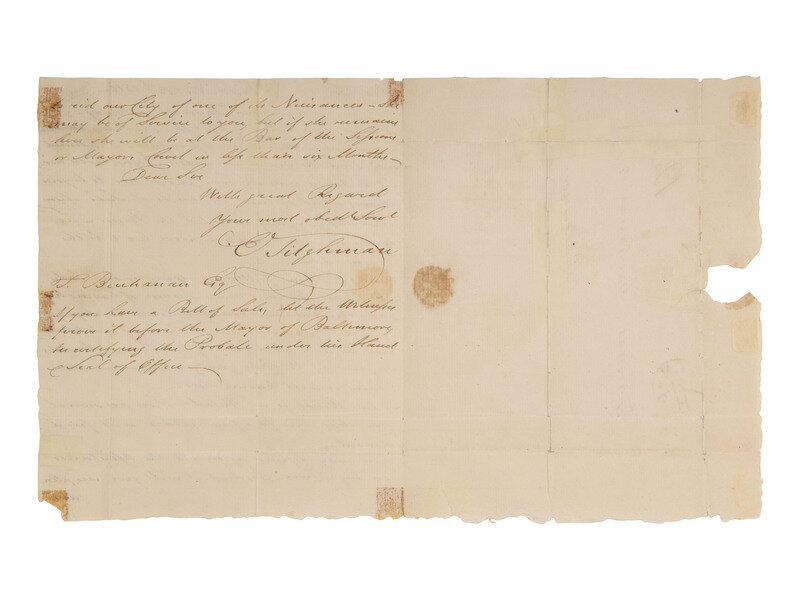 rid our City of one of its Nuisances – She
may be of Service to you, but if she remains
here she will be at the Bar of the Sessions
or Mayors Court in less than six Months –
Dear Sir
With great Regard
Your most obedt Servt
Tilghman
Buchanan Esq
If you have a Bill of Sale, let the Witnesses
prove it before the Mayor of Baltimore
certifying the Probate under his Hand
& Seal of Office –